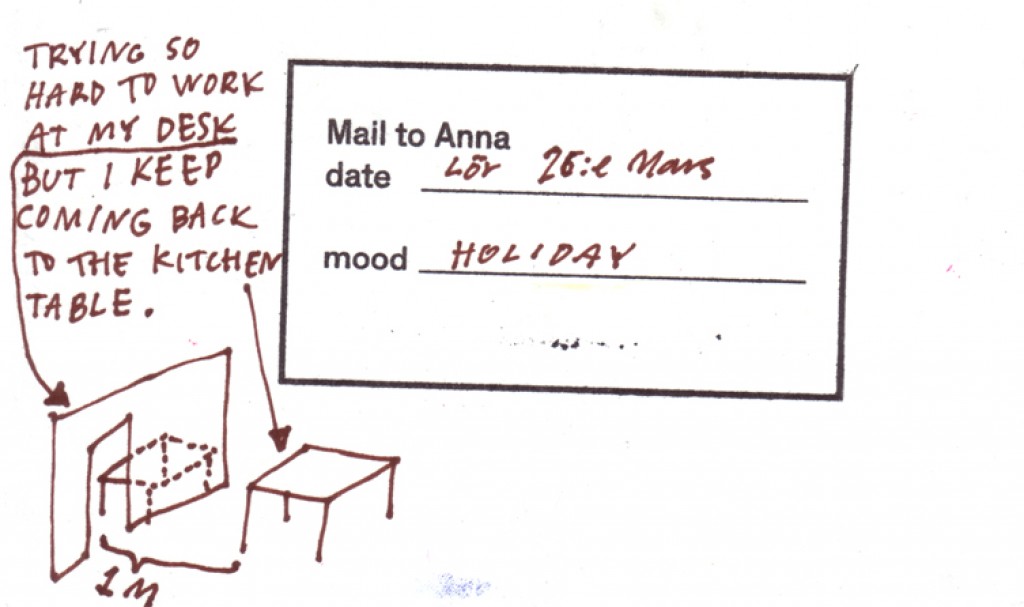 TRYING SO
HARD TO WORK
AT MY DESK
BUT I KEEP
COMING BACK
TO THE KITCHEN
TABLE.
1 M
Mail to Anna
date Lör 26:e Mars
mood HOLIDAY